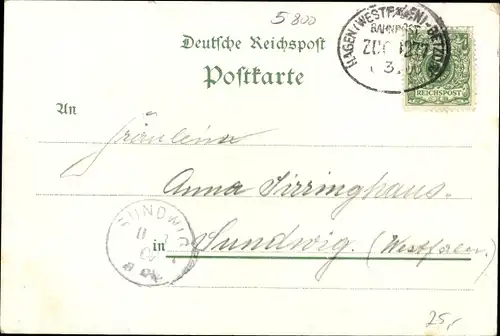 5800
HAGEN (WESTFALEN)-BETZDORF
BAHNPOST
ZUG 1277
3.
REICHSPOST
Deutsche Reichspost
Postkarte
An
Fräulein
Anna Sirringhaus.
in Sundwig. (Westfalen.)
SUNDWIG
25,-